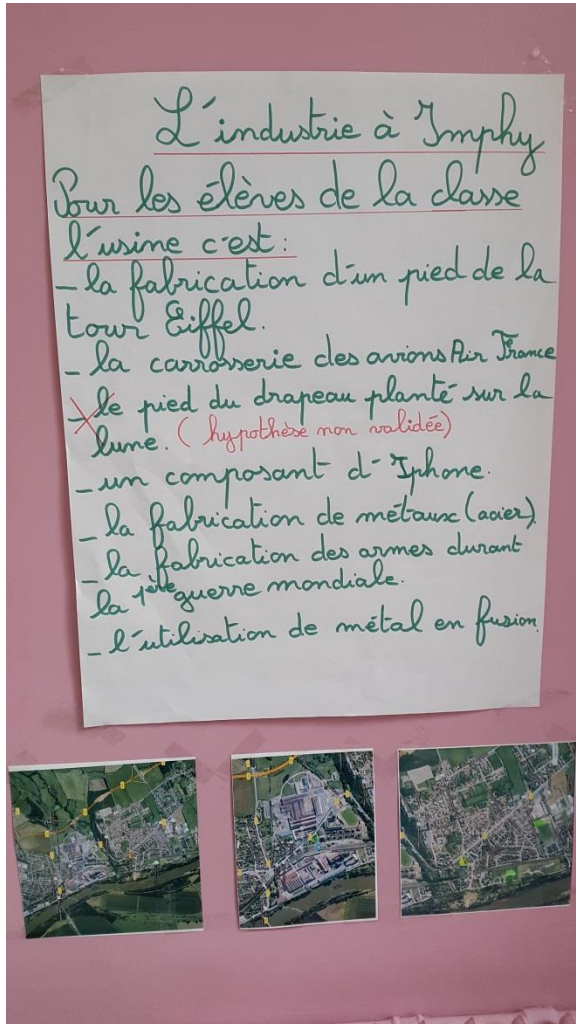 L'industrie à Imphy
Pour les élèves de la classe
l'usine c'est :
- la fabrication d'un pied de la
tour Eiffel.
- la carrosserie des avions Air France
- le pied du drapeau planté sur la
lune. ( hypothèse non validée)
- un composant d'Iphone.
- la fabrication de métaux (acier).
- la fabrication des armes durant
la 1ère guerre mondiale.
- l'utilisation de métal en fusion.